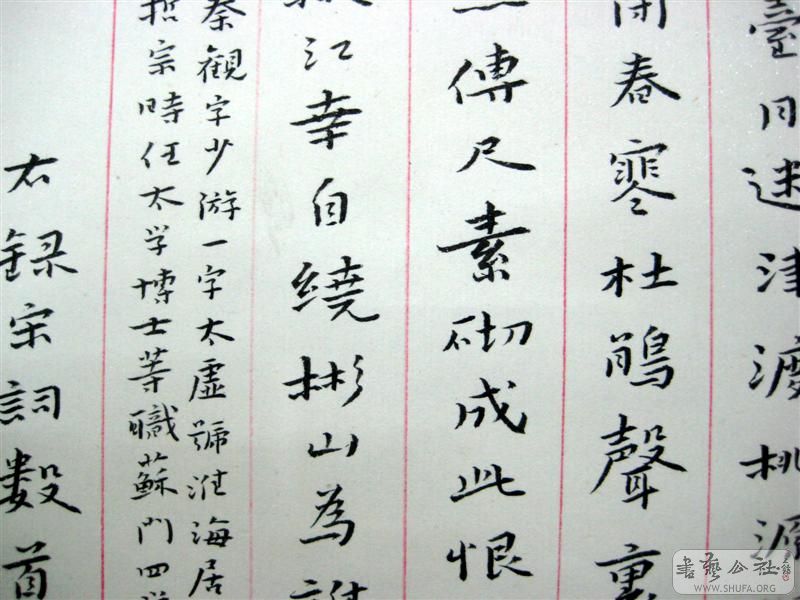 臺月迷津渡桃源
閉春寒杜鵑聲裏
傳尺素砌成此恨
江幸自繞彬山為誰
秦觀字少游一字太虛號淮海居
哲宗時任太学博士等職蘇门四学
右録宋詞數首
書藝公社
WWW.SHUFA.ORG